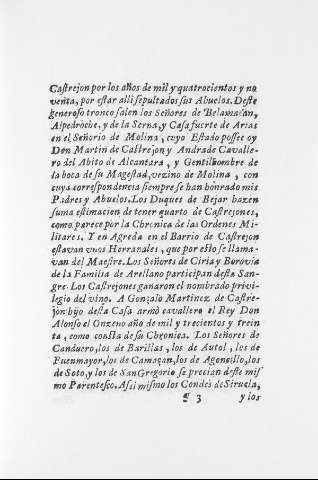 Caſtrejon por los años de mil y quatrocientos y no
venta, por eſtar alli ſepultados ſus Abuelos. Deſte
generoſo tronco ſalen los Señores de Belamaçan,
Alpedroche, y de la Serna, y Caſa fuerte de Arias
en el Señorio de Molina, cuyo Eſtado poſſee oy
Don Martin de Caſtrejon y Andrade Cavalle-
ro del Abito de Alcantara, y Gentilhombre de
la boca de ſu Mageſtad, vezino de Molina, con
cuya correſpondencia ſiempre ſe han honrado mis
Padres y Abuelos. Los Duques de Bejar hazen
ſuma eſtimacion de tener quarto de Caſtrejones,
como parece por la Chronica de las Ordenes Mi-
litares. Y en Agreda en el Barrio de Caſtrejon
eſtavan unos Horranales, que por eſto ſe llama-
van del Maeſtre. Los Señores de Ciria y Borovia
de la Familia de Arellano participan deſta San-
gre. Los Caſtrejones ganaron el nombrado privi-
legio del vino. A Gonçalo Martinez de Caſtre-
jon hijo deſta Caſa armò cavallero el Rey Don
Alonſo el Onzeno año de mil y trecientos y trein
ta, como conſta de ſu Chronica. Los Señores de
Canduero, los de Barillas, los de Autol, los de
Fuenmayor, los de Camaçan, los de Agoncillo, los
de Soto, y los de San Gregorio ſe precian deſte miſ
mo Parenteſco. Aſsi miſmo los Condes de Siruela,
¶ 3 y los